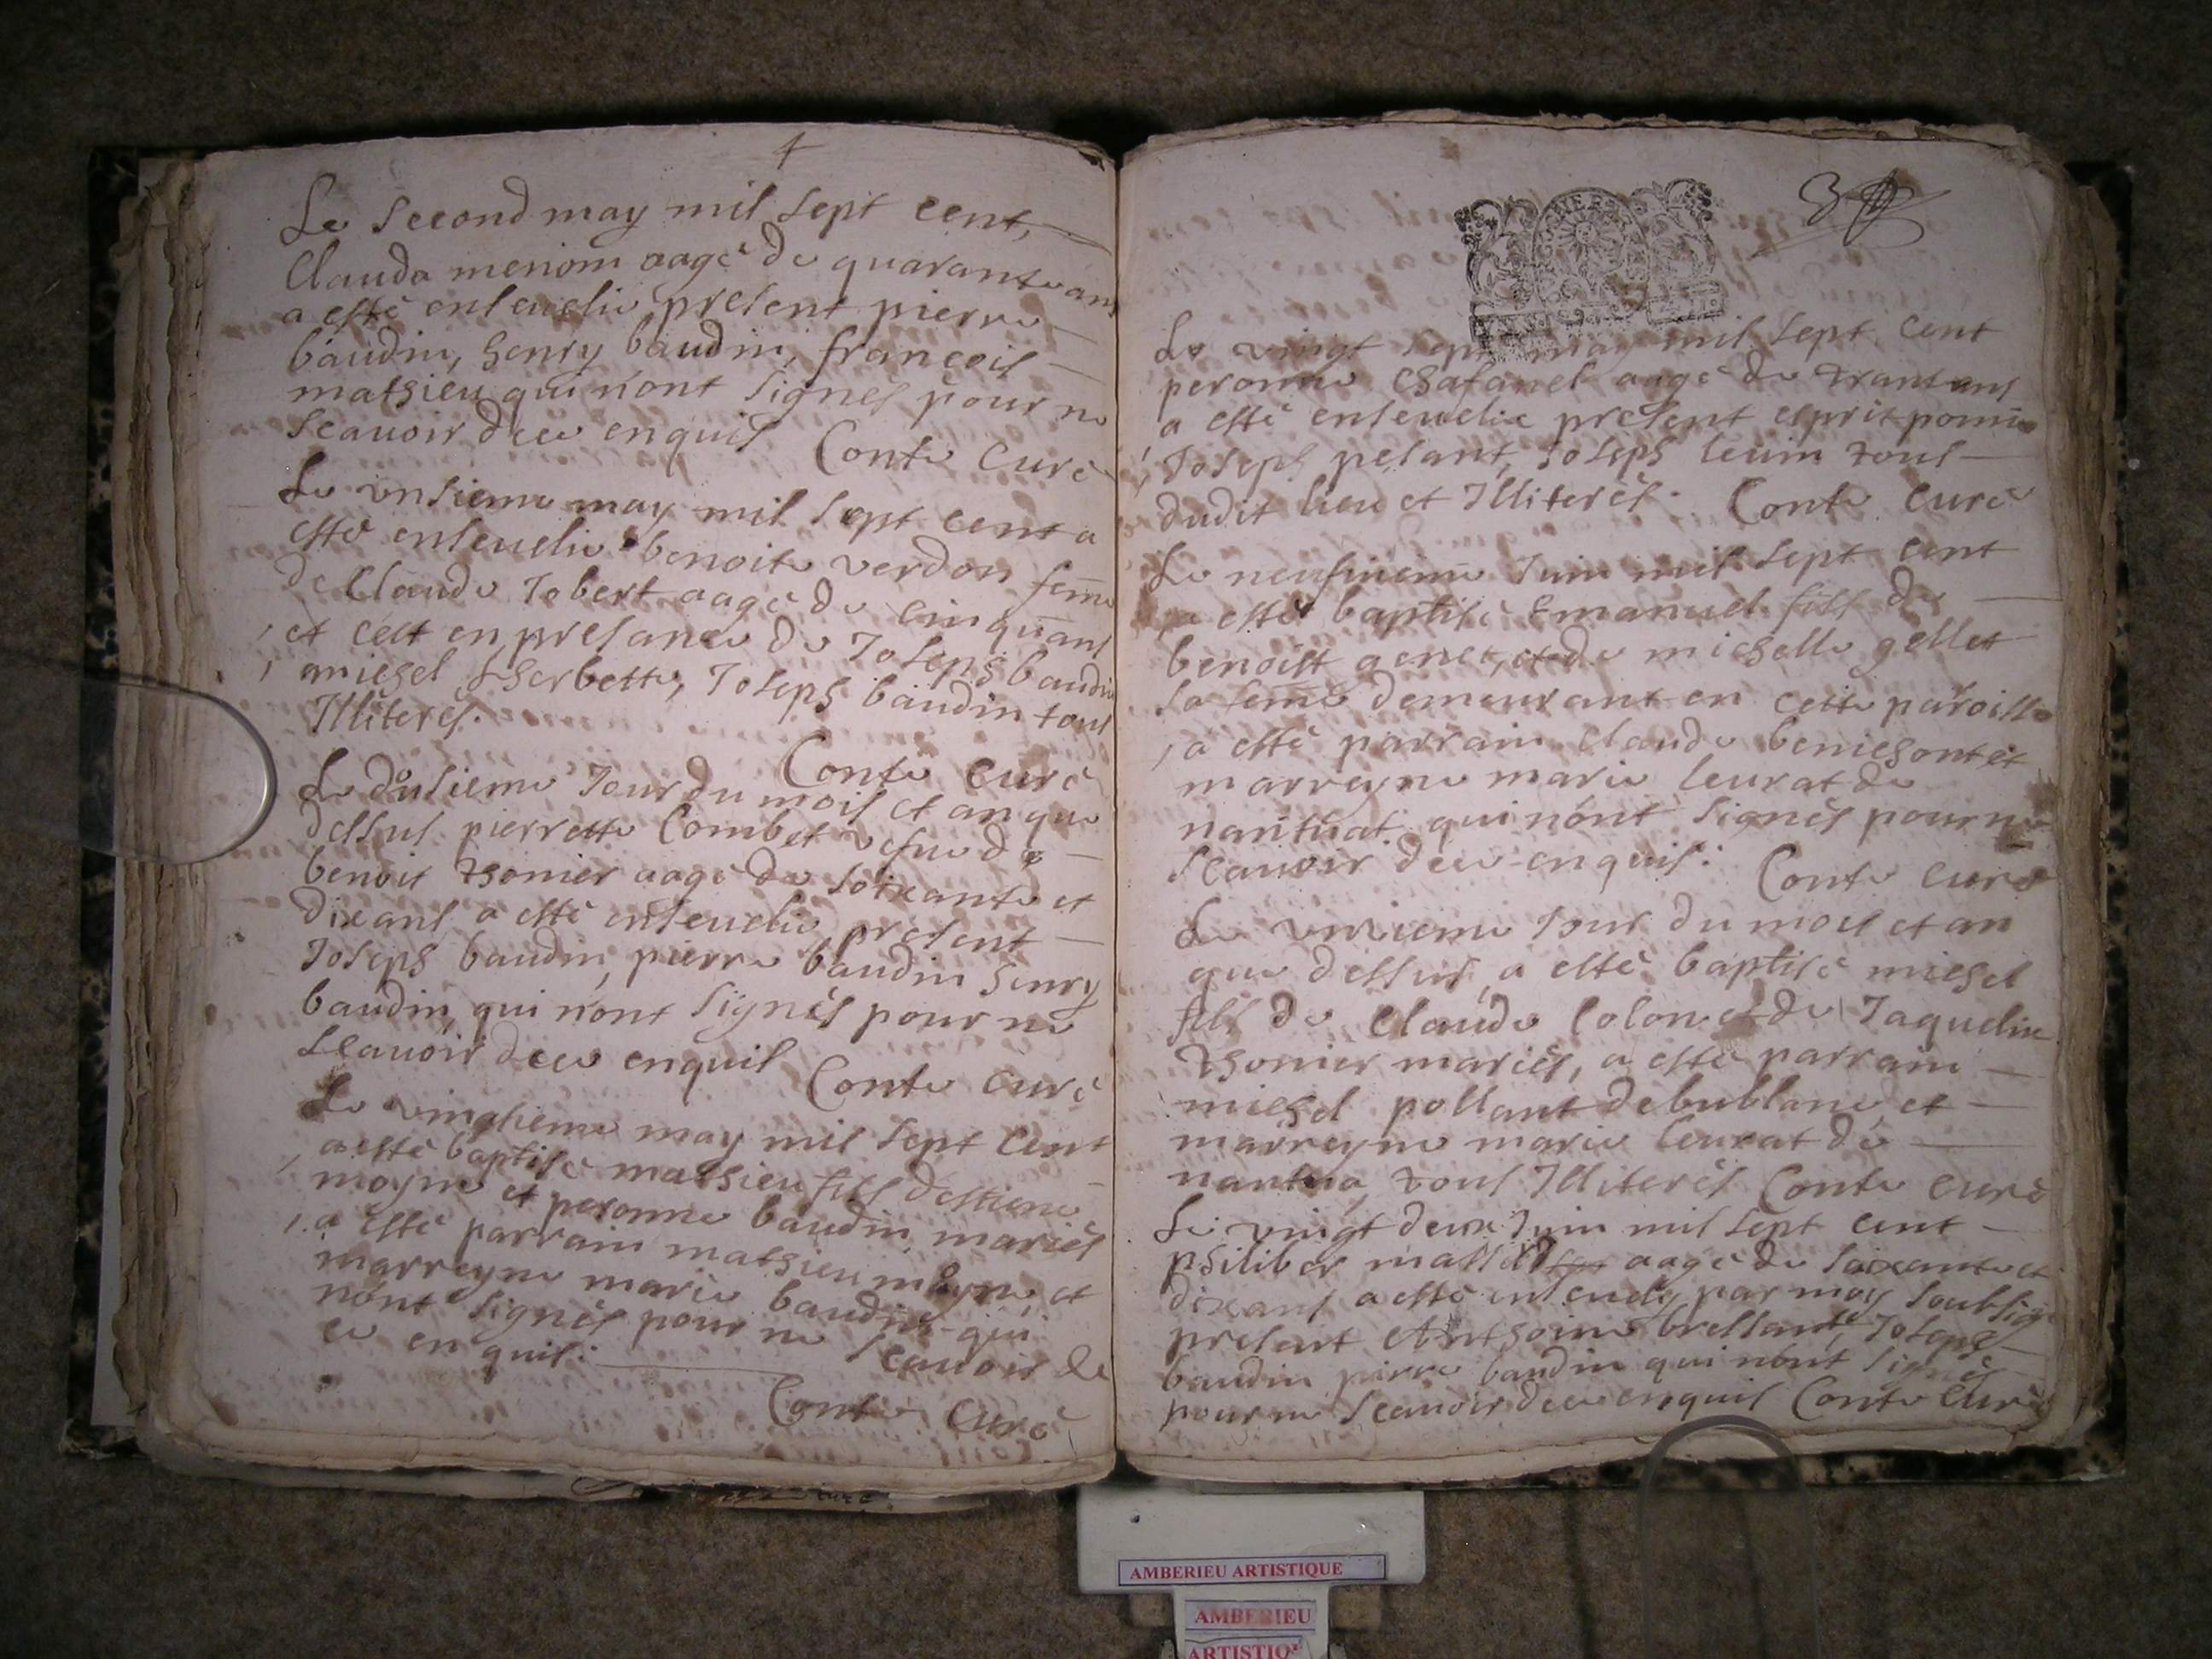 4
Le second may mil sept cent,
Clauda menom aagé de quarante ans
a esté enseuelie present pierre
baudin, henry baudin, françois
mathieu qui n'ont signés pour ne
scauoir de ce enquis Conte Curé
Le unsieme may mil sept cent a
esté enseuelie benoite verdon feme
de Claude Jobert aagé de cinquans
et cest en presance de Joseph baudin
michel Lherbette, Joseph baudin tous
Illiterés.
Conte Curé
Le dusieme Jour du mois et an que
dessus pierrette Combet vefue de
benoit thonier aagé de soixante et
dix ans a esté enseuelie present
Joseph baudin, pierre baudin henry
baudin, qui n'ont signés pour ne
scauoir de ce enquis Conte Curé
Le vingtieme may mil sept cent
a esté baptisé mathieu fils d'estiene
moyne et peronne baudin mariés
a esté parrain mathieu moyne, et
marreyne marie baudin qui
n'ont signés pour ne scauoir de
ce enquis:
Conte Curé
3
Le vingt sept may mil sept cent
peronne Chafanel aagé de trant ans
a esté enseuelie present esprit
Joseph pesant, Joseph leuin tous
dudit lieu et Illiterés. Conte Curé
Le neufuieme Juin mil sept cent
a esté baptisé Emanuel fils de
benoist genet, et de michelle gellet
sa feme demeurant en cette paroisse
a esté parrain claude benichont et
marreyne marie leurat de
nantuat qui n'ont signés pour ne
scauoir de ce enquis: Conte Curé
Le unzieme Jour du mois et an
que dessus, a esté baptisé michel
fils de Claude Colon et de Jaqueline
thonier mariés, a esté parrain
michel pollant debublane, et
marreyne marie leurat de
nantua, tous Illiterés Conte Curé
Le vingt deux Juin mil sept cent
philiber aagé de soixante et
dix ans a esté enseuely par moy soubsig
present Anthoine bressant, Joseph
baudin pierre baudin qui n'ont signés
pour ne scauoir de ce enquis Conte Curé
AMBERIEU ARTISTIQUE
AMBERIEU
ARTISTIQ